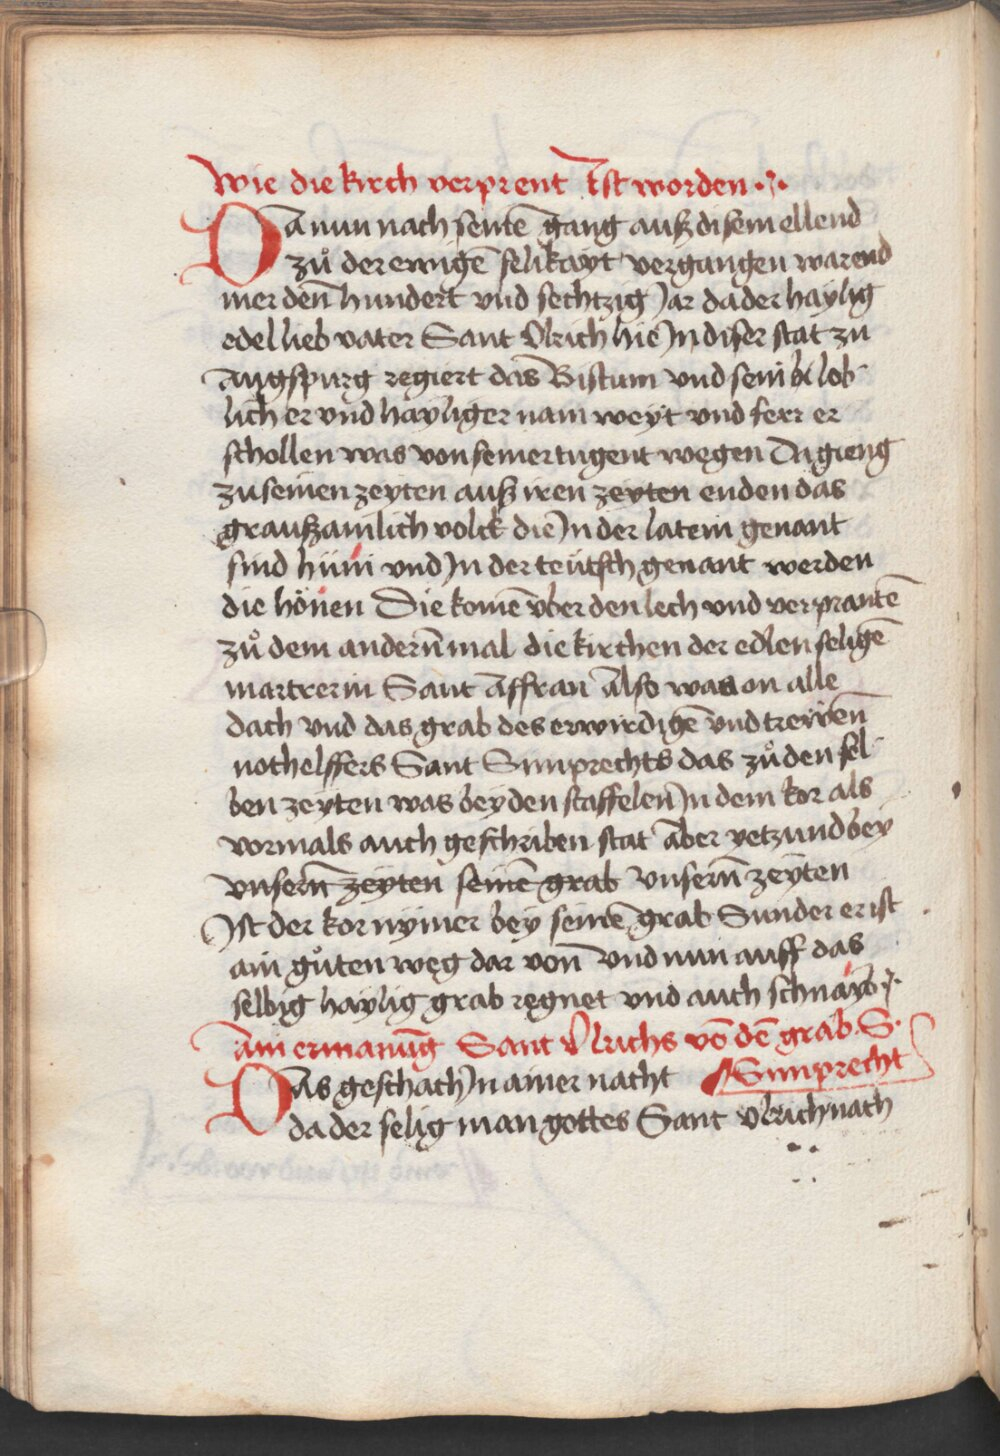 Wie die kirch verprent Ist worden
Da nun nach seinē gang auß disem ellend
zů der ewigē selikayt vergangen warend
mer deñ hundert vnd sechtzig Jar da der haylig
edel lieb vater Sant Vlrich hie In diser stat zu
Augspurg regiert das Bistum vnd sein lob
lich er vnd hayliger nam weyt vnd ferr er
schollen was von seiner tugent wegen Da gieng
zu seinen zeyten auß iren zeyten enden das
graußamlich volck die In der latein genant
sind hüni vnd In der teütsch genant werden
die hönen Die komē vber den lech vnd verprantē
zů dem anderñ mal die kirchen der edlen seligē
martrerin Sant Affran Also was on alle
dach vnd das grab des erwirdigē vnd trewen
nothelffers Sant Simprechts das zů den sel
ben zeyten was bey den staffelen In dem kor als
vormals auch geschriben stat Aber yetzund bey
vnserñ zeyten seinē grab vnserñ zeyten
Ist der kor nymer bey seinē grab Sunder er ist
ain gůten weg dar voñ vnd nun auff das
selbig haylig grab regnet vnd auch schnaybt
Ain ermanūg Sant Vlrichs vō dē grab S.
Simprecht
Das geschach In ainer nacht
da der selig man gottes Sant Vlrich nach